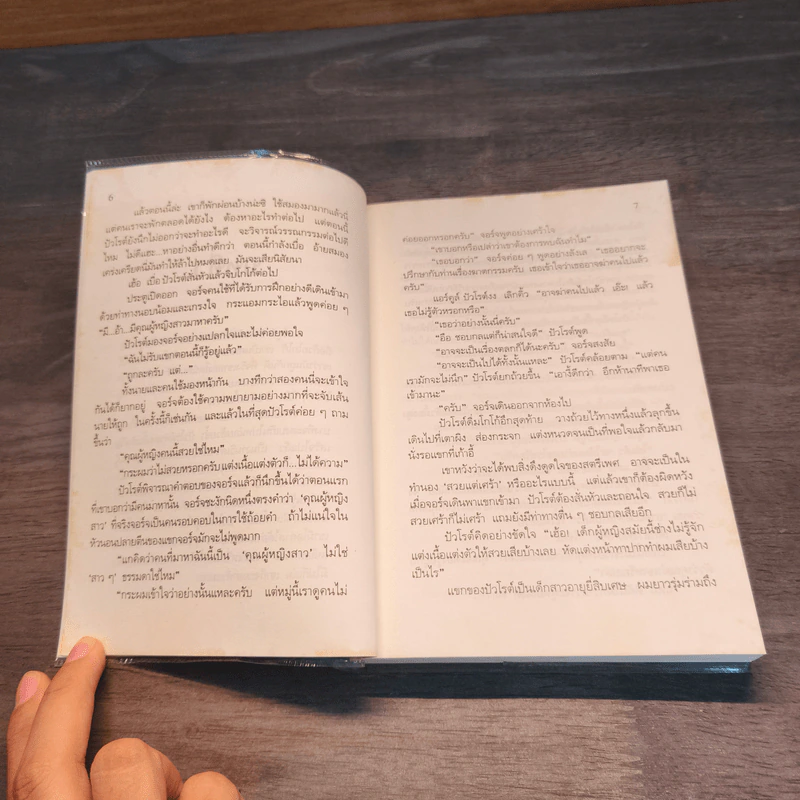 6
แล้วตอนนี้ล่ะ เขาก็พักผ่อนบ้างน่ะซิ ใช้สมองมามากแล้วนี่
แต่คนเราจะพักตลอดได้ยังไง ต้องหาอะไรทำต่อไป แต่ตอนนี้
ปัวโรต์ยังนึกไม่ออกว่าจะทำอะไรดี จะวิจารณ์วรรณกรรมต่อไปดี
ไหม ไม่ดีแฮะ หาอย่างอื่นทำดีกว่า ตอนนี้กำลังเบื่อ อ้ายสมอง
เคร่งเครียดนี่มันทำให้ล้าไปหมดเลย มันจะเสียนิสัยนา
เฮ้อ เบื่อ ปัวโรต์สั่นหัวแล้วจิบโกโก้ต่อไป
ประตูเปิดออก จอร์จคนใช้ที่ได้รับการฝึกอย่างดีเดินเข้ามา
ด้วยท่าทางนอบน้อมและเกรงใจ กระแอมกระไอแล้วพูดค่อย ๆ
“มี...อ้า...มีคุณผู้หญิงสาวมาหาครับ”
ปัวโรต์มองจอร์จอย่างแปลกใจและไม่ค่อยพอใจ
“ฉันไม่รับแขกตอนนี้ก็รู้อยู่แล้ว”
“ถูกละครับ แต่...”
ทั้งนายและคนใช้มองหน้ากัน บางทีกว่าสองคนนี่จะเข้าใจ
กันได้ก็ยากอยู่ จอร์จต้องใช้ความพยายามอย่างมากที่จะจับเส้น
นายให้ถูก ในครั้งนี้ก็เช่นกัน และแล้วในที่สุดปัวโรต์ค่อย ๆ ถาม
ขึ้นว่า
“คุณผู้หญิงคนนี้สวยใช่ไหม”
“กระผมว่าไม่สวยหรอกครับ แต่งเนื้อแต่งตัวก็...ไม่ได้ความ”
ปัวโรต์พิจารณาคำตอบของจอร์จแล้วก็นึกขึ้นได้ว่าตอนแรก
ที่เขาบอกว่ามีคนมาหานั้น จอร์จชะงักนิดหนึ่งตรงคำว่า ‘คุณผู้หญิง
สาว’ ที่จริงจอร์จเป็นคนรอบคอบในการใช้ถ้อยคำ ถ้าไม่แน่ใจใน
หัวนอนปลายตีนของแขกจอร์จมักจะไม่พูดมาก
“แกคิดว่าคนที่มาหาฉันนี้เป็น ‘คุณผู้หญิงสาว’ ไม่ใช่
‘สาว ๆ’ ธรรมดาใช่ไหม”
“กระผมเข้าใจว่าอย่างนั้นแหละครับ แต่หมู่นี้เราดูคนไม่
7
ค่อยออกหรอกครับ” จอร์จพูดอย่างเศร้าใจ
“เขาบอกหรือเปล่าว่าเขาต้องการพบฉันทำไม”
“เธอบอกว่า” จอร์จค่อย ๆ พูดอย่างลังเล “เธออยากจะ
ปรึกษากับท่านเรื่องฆาตกรรมครับ เธอเข้าใจว่าเธออาจฆ่าคนไปแล้ว
ครับ”
แอร์คูล์ ปัวโรต์งง เลิกคิ้ว “อาจฆ่าคนไปแล้ว เอ๊ะ! แล้ว
เธอไม่รู้ตัวหรอกหรือ”
“เธอว่าอย่างนั้นนี่ครับ”
“อือ ชอบกลแต่ก็น่าสนใจดี” ปัวโรต์พูด
“อาจจะเป็นเรื่องตลกก็ได้นะครับ” จอร์จสงสัย
“อาจจะเป็นไปได้ทั้งนั้นแหละ” ปัวโรต์คล้อยตาม “แต่คน
เรามักจะไม่นึก” ปัวโรต์ยกถ้วยขึ้น “เอางี้ดีกว่า อีกห้านาทีพาเธอ
เข้ามานะ”
“ครับ” จอร์จเดินออกจากห้องไป
ปัวโรต์ดื่มโกโก้อึกสุดท้าย วางถ้วยไว้ทางหนึ่งแล้วลุกขึ้น
เดินไปที่เตาผิง ส่องกระจก แต่งหนวดจนเป็นที่พอใจแล้วกลับมา
นั่งรอแขกที่เก้าอี้
เขาหวังว่าจะได้พบสิ่งดึงดูดใจของสตรีเพศ อาจจะเป็นใน
ทำนอง ‘สวยแต่เศร้า’ หรืออะไรแบบนี้ แต่แล้วเขาก็ต้องผิดหวัง
เมื่อจอร์จเดินพาแขกเข้ามา ปัวโรต์ต้องสั่นหัวและถอนใจ สวยก็ไม่
สวยเศร้าก็ไม่เศร้า แถมยังมีท่าทางตื่น ๆ ชอบกลเสียอีก
ปัวโรต์คิดอย่างขัดใจ “เฮ้อ! เด็กผู้หญิงสมัยนี้ช่างไม่รู้จัก
แต่งเนื้อแต่งตัวให้สวยเสียบ้างเลย หัดแต่งหน้าทาปากทำผมเสียบ้าง
เป็นไร”
แขกของปัวโรต์เป็นเด็กสาวอายุยี่สิบเศษ ผมยาวรุ่มร่ามถึง